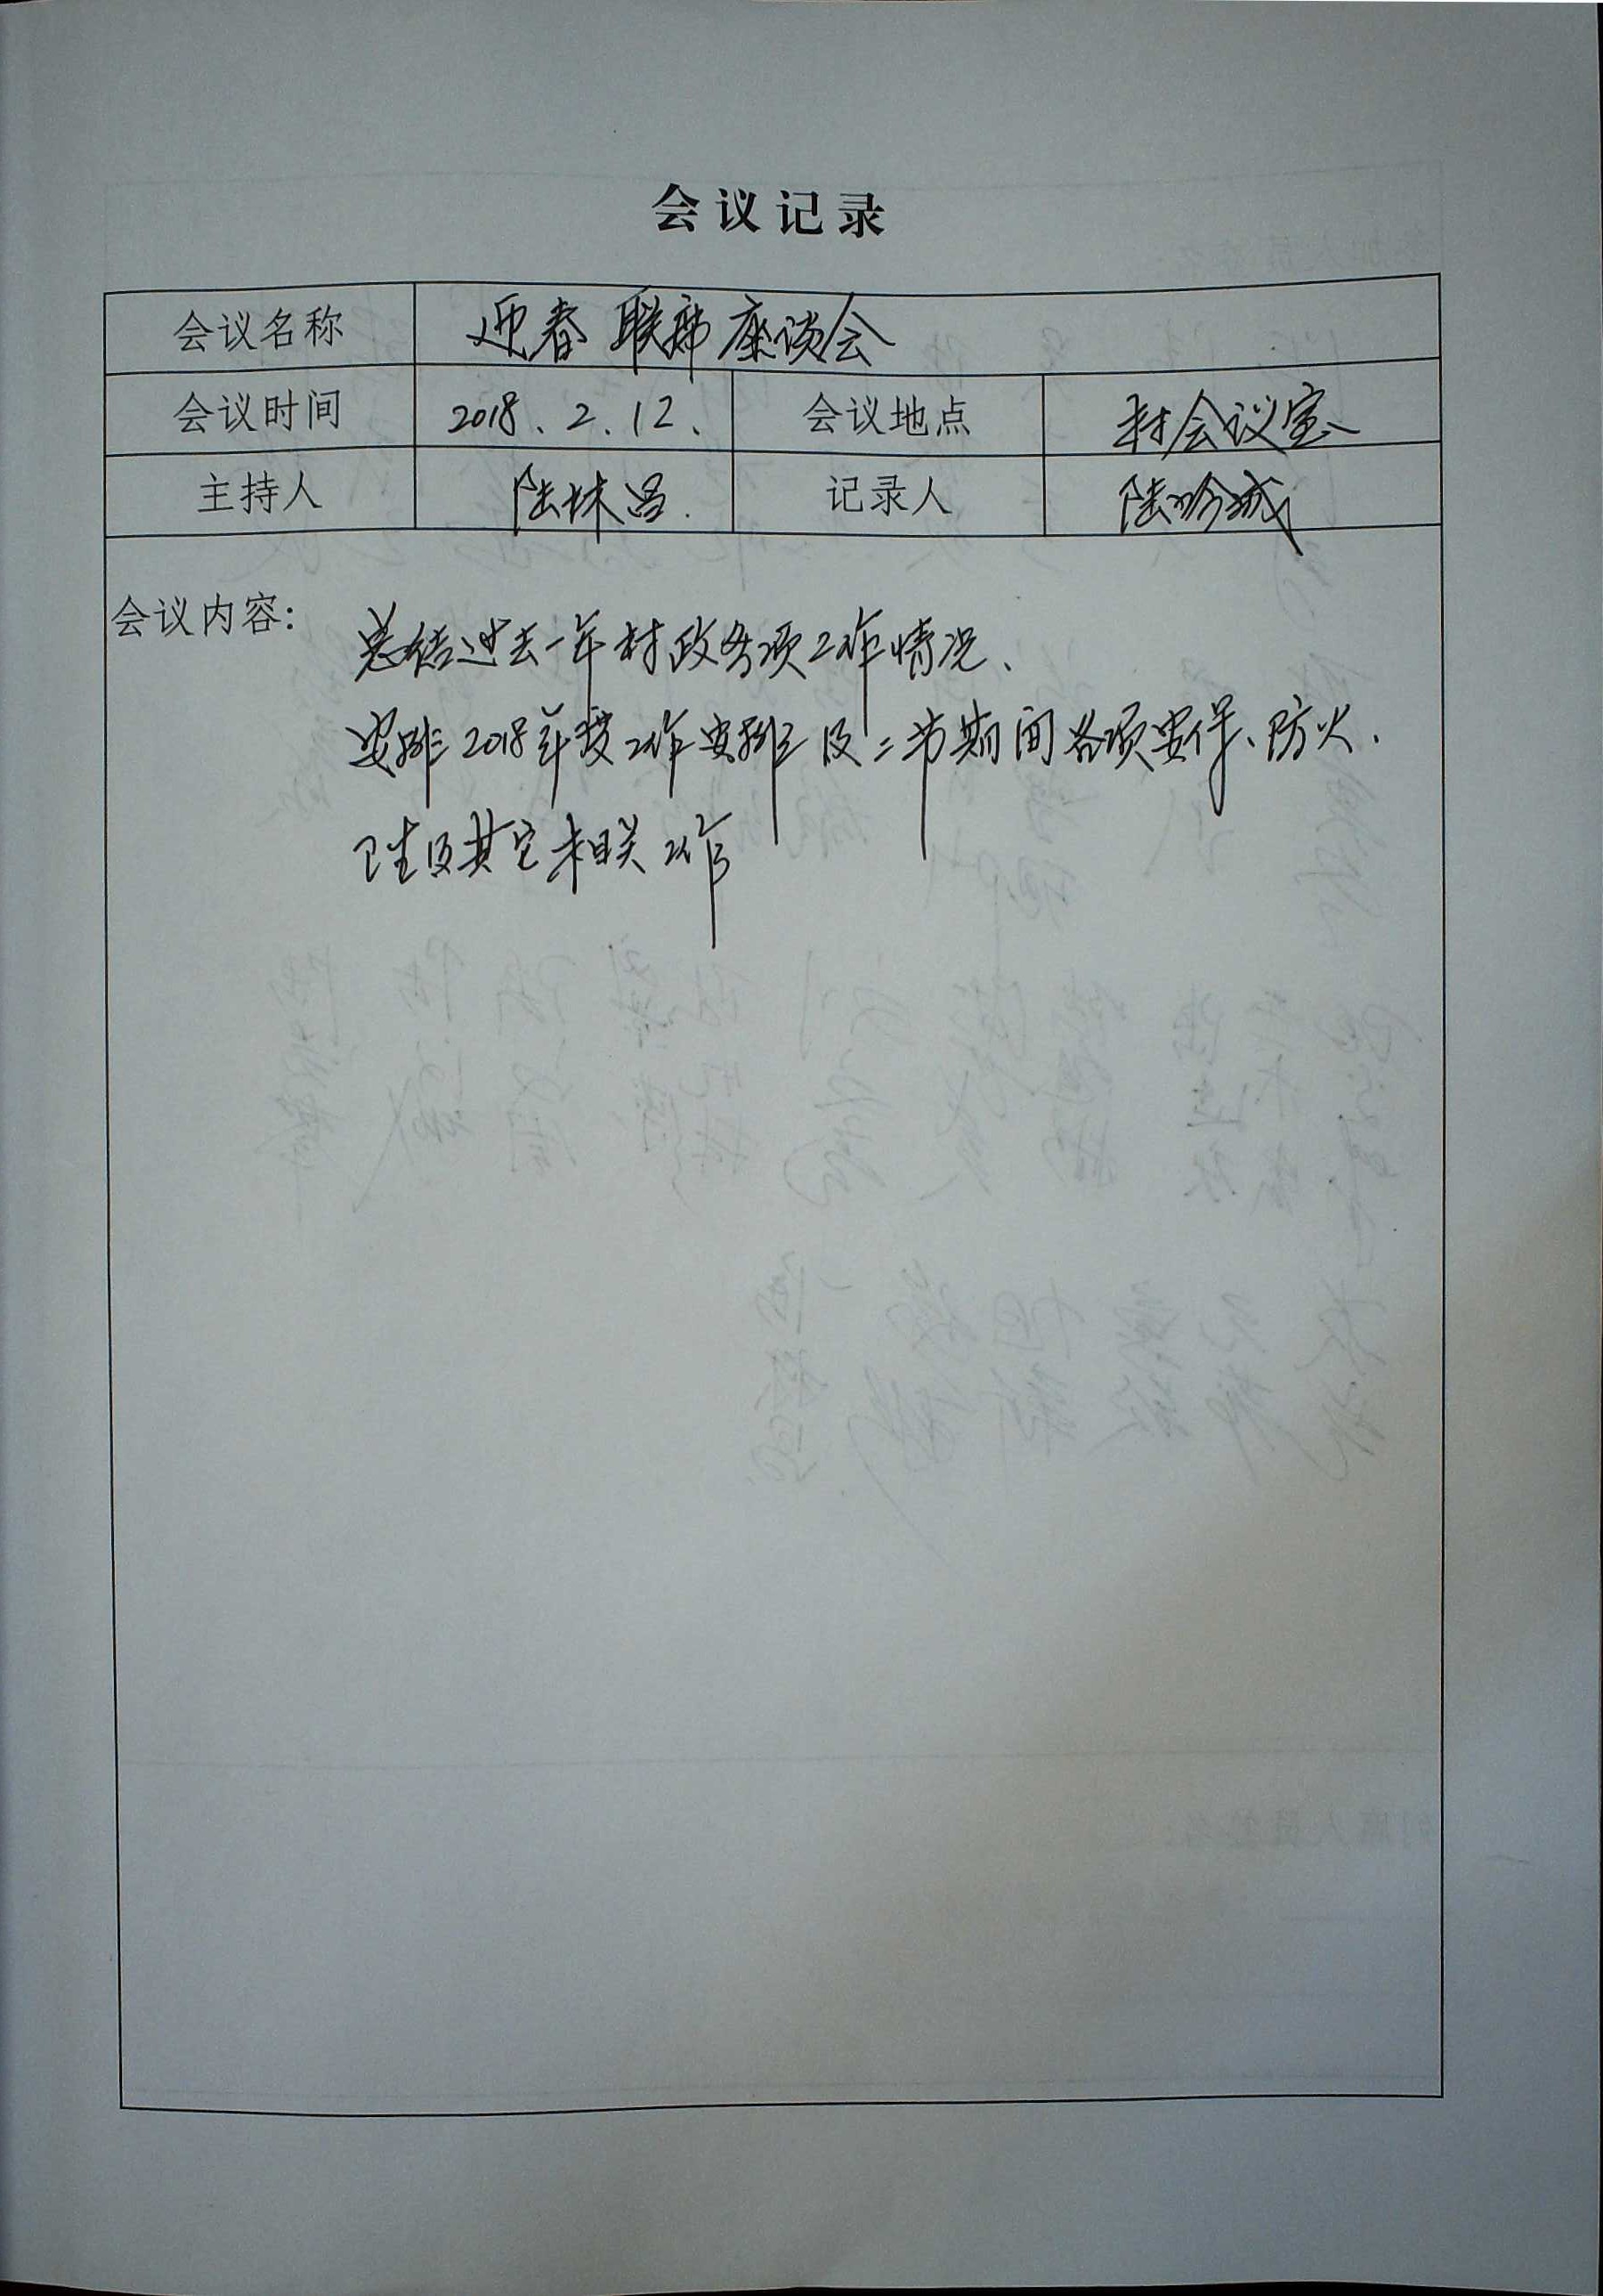 会议记录
会议名称 迎春联席座谈会
会议时间 2018.2.12. 会议地点 村会议室
主持人 陆林昌. 记录人 陆珍城
会议内容:
总结过去一年村政各项工作情况、
安排2018年度工作安排及二节期间各项安保、防火.
卫生及其它相关工作